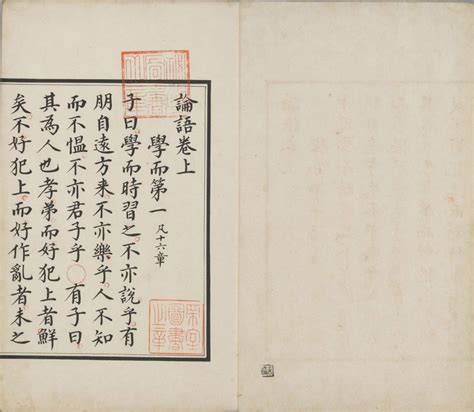 論語卷上
學而第一 凡十六章
子曰學而時習之不亦說乎有
朋自遠方來不亦樂乎人不知
而不慍不亦君子乎○有子曰
其為人也孝弟而好犯上者鮮
矣不好犯上而好作亂者未之